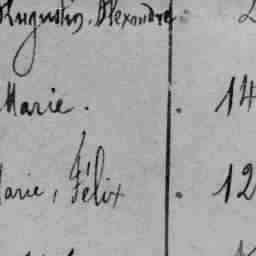 Augustin, Alexandre
Marie. . 14
Marie, Félix . 12